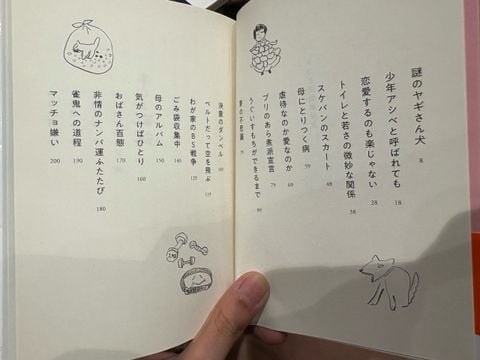 謎のヤギさん犬 8
少年アシベと呼ばれても 18
恋愛するのも楽じゃない 28
トイレと若さの微妙な関係 38
スケバンのスカート 48
母にとりつく病 59
虐待なのか愛なのか 69
ブリのあら煮派宣言 79
うぐいすもちができるまで 89
夢の不思議
決意のダンベル
ベルトだって空を飛ぶ
わが家のBS戦争 129
ごみ袋収集中 140
母のアルバム 150
気がつけばひとり 160
おばさん百態 170
非情のナンパ運ふたたび 180
雀鬼への道程 190
マッチョ嫌い 200